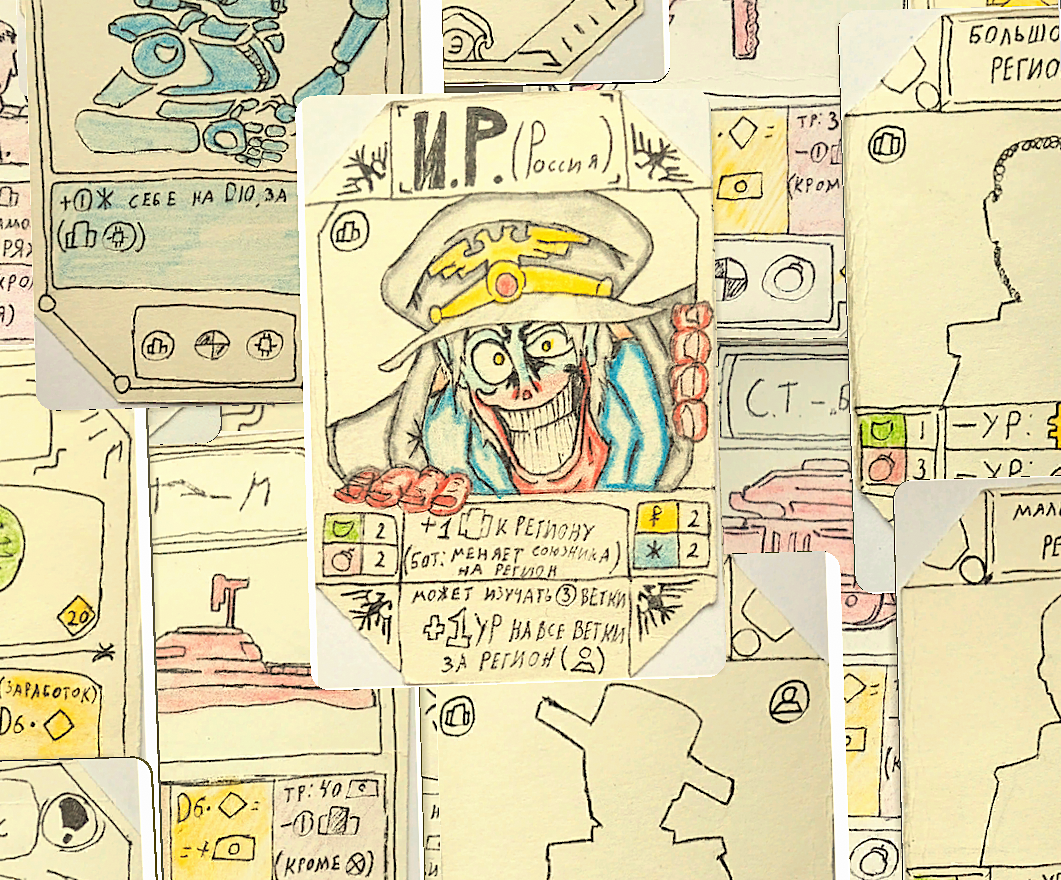 И.Р. (Россия)
2
2
+1 К РЕГИОНУ
(БОТ: МЕНЯЕТ СОЮЗНИКА)
НА РЕГИОН
₽ 2
2
МОЖЕТ ИЗУЧАТЬ 3 ВЕТКИ
+1 УР НА ВСЕ ВЕТКИ
ЗА РЕГИОН ( )
+1 СЕБЕ НА D10, ЗА
( )
БОЛЬШО
РЕГИО
1
3
-УР:
-УР:
ТР: 3
-1
(КРОМ
С.Т.-Б
МАЛ
РЕ
20
(ЗАРАБОТОК)
D6·
Т-М
D6· =
=+
ТР: 40
-1
(КРОМЕ )